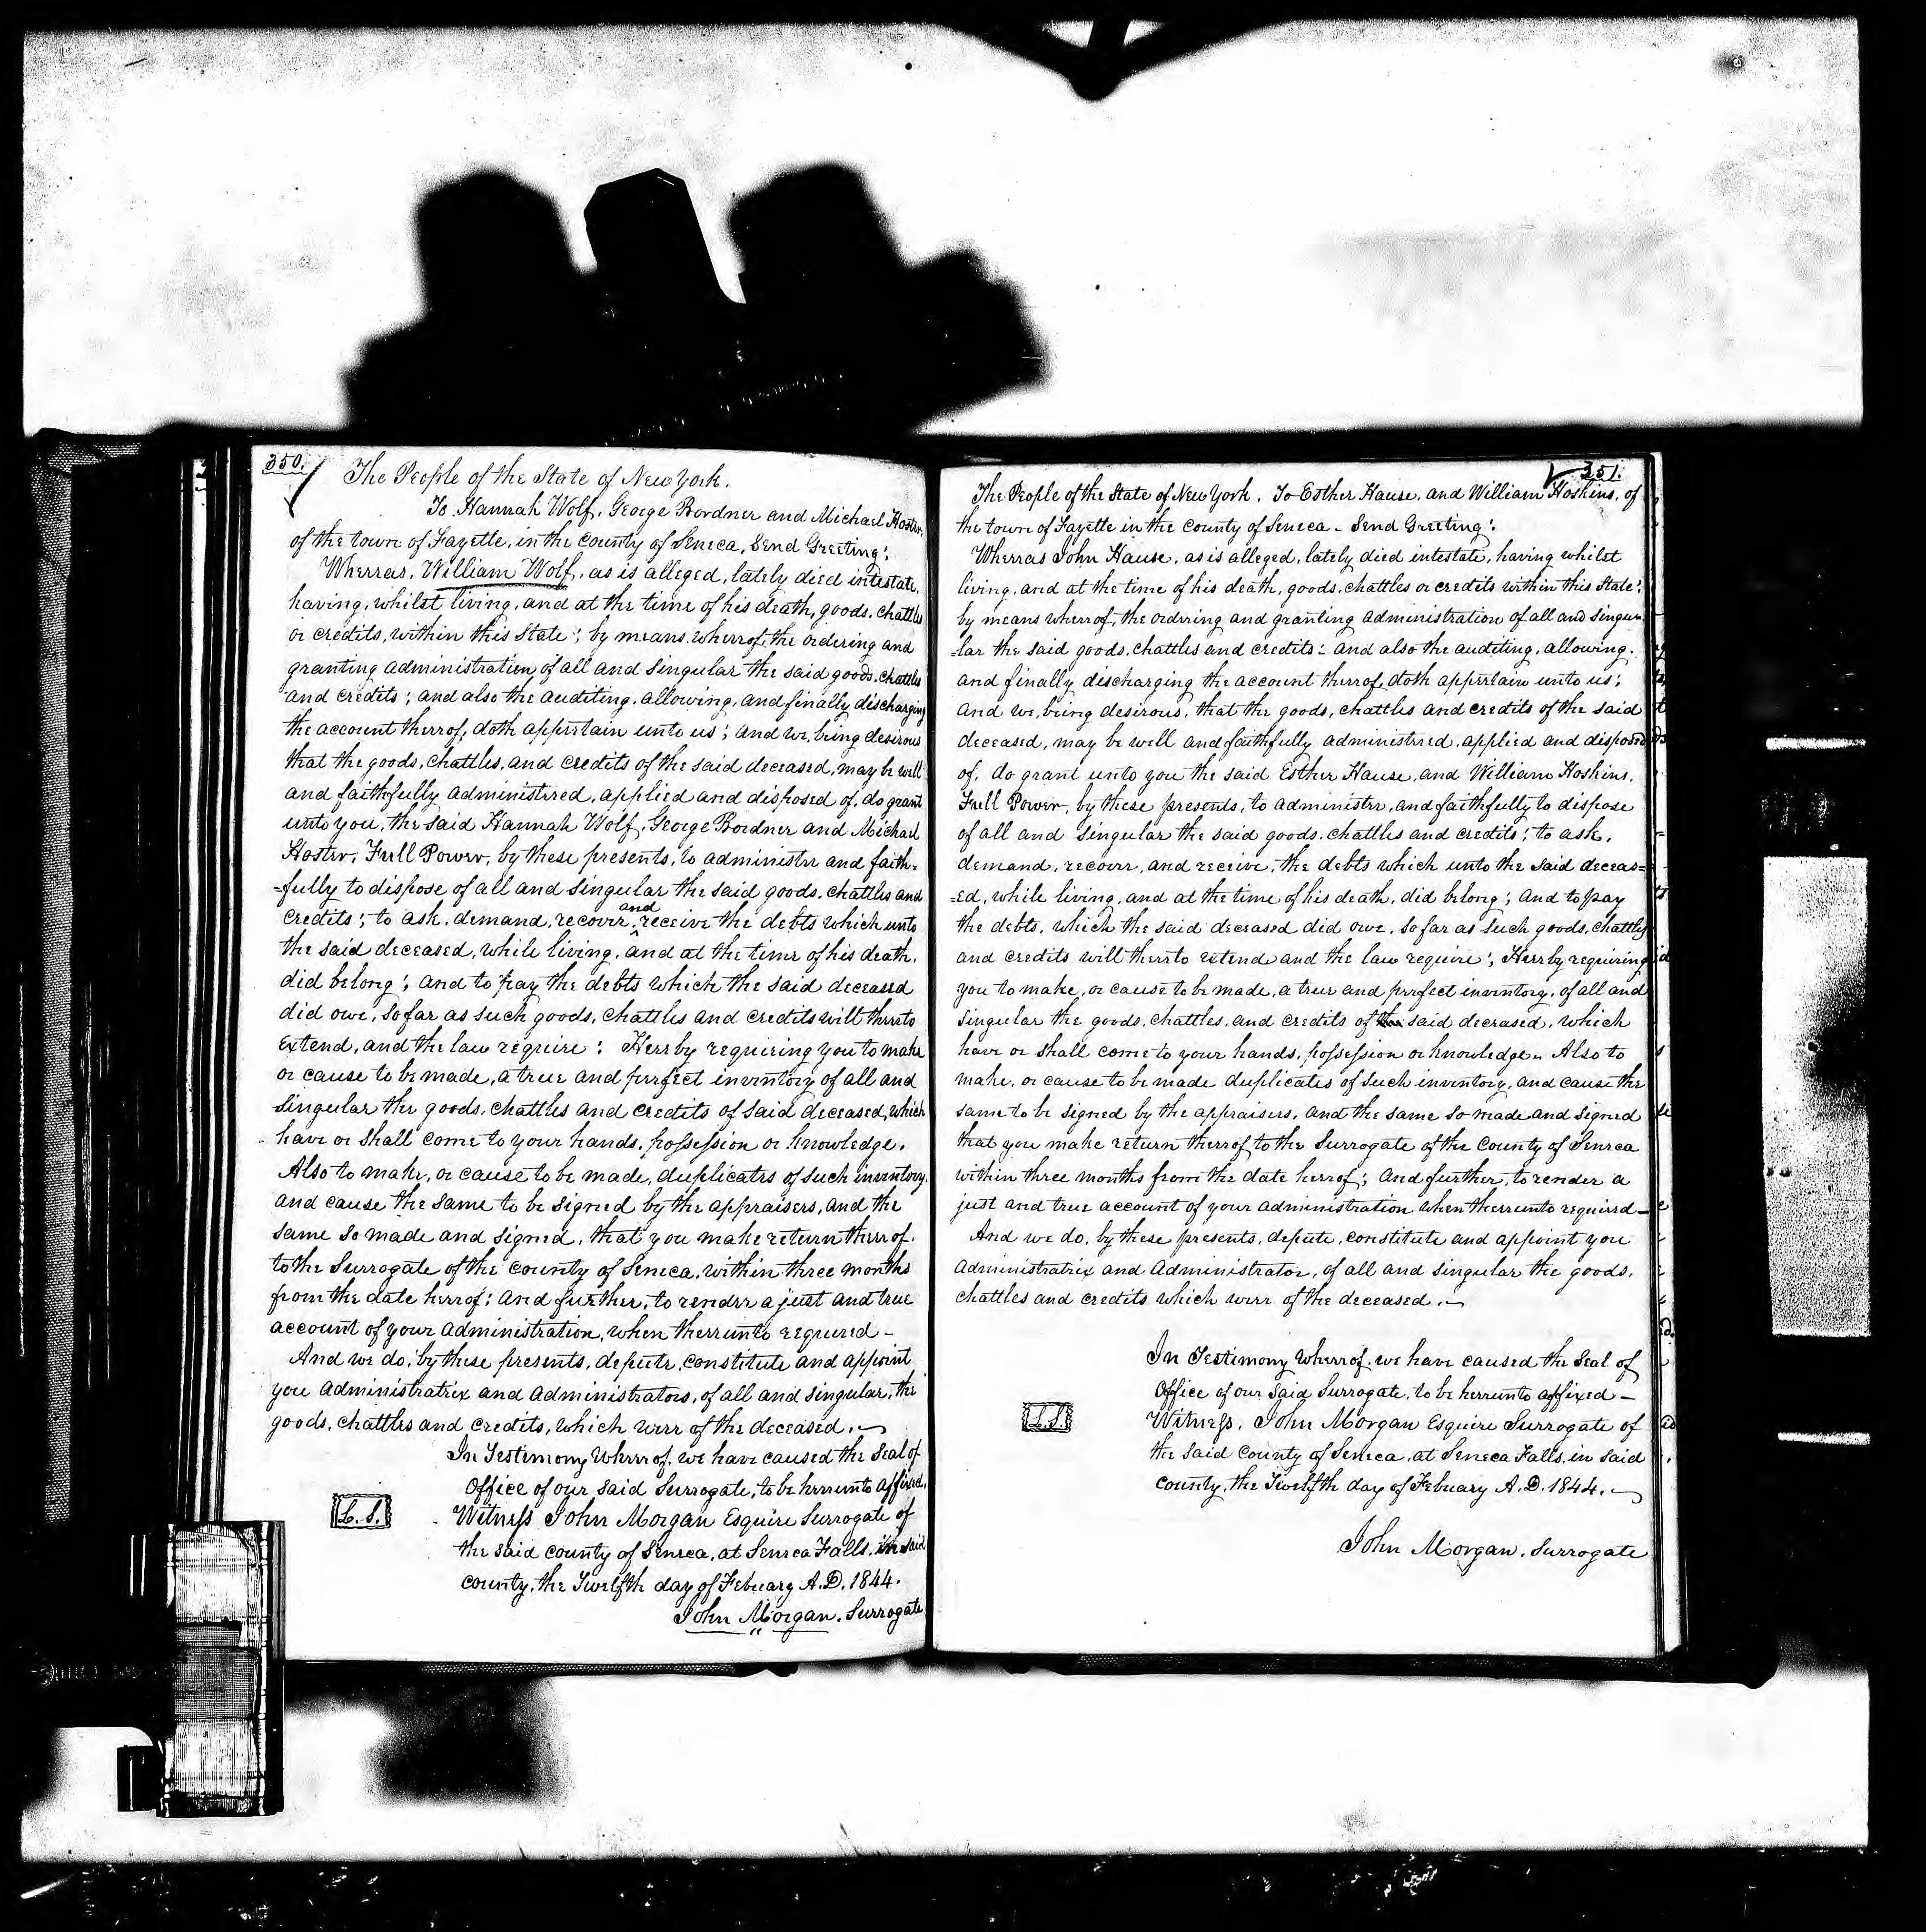 350.
The People of the State of New York.
To Hannah Wolf, George Bordner and Michael Hoster,
of the town of Fayette, in the county of Seneca, Send Greeting:
Whereas, William Wolf, as is alleged, lately died intestate,
having, whilst living, and at the time of his death, goods, chattles
or credits, within this State; by means whereof, the ordering and
granting administration of all and singular the said goods, chattles
and credits; and also the auditing, allowing, and finally discharging
the account thereof, doth appertain unto us; and we, being desirous
that the goods, chattles, and credits of the said deceased, may be well
and faithfully administered, applied and disposed of, do grant
unto you, the said Hannah Wolf, George Bordner and Michael
Hoster, Full Power, by these presents, to administer and faith=
=fully to dispose of all and singular the said goods, chattles and
credits; to ask, demand, recover, and receive the debts which unto
the said deceased, while living, and at the time of his death,
did belong; and to pay the debts which the said deceased
did owe, so far as such goods, chattles and credits will thereto
extend, and the law require: Hereby requiring you to make
or cause to be made, a true and perfect inventory of all and
singular the goods, chattles and credits of said deceased, which
have or shall come to your hands, possession or knowledge.
Also to make, or cause to be made, duplicates of such inventory,
and cause the same to be signed by the appraisers, and the
same so made and signed, that you make return thereof,
to the Surrogate of the county of Seneca, within three months
from the date hereof; and further, to render a just and true
account of your administration, when thereunto required -
And we do, by these presents, depute, constitute and appoint
you administratrix and administrators, of all and singular, the
goods, chattles and credits, which were of the deceased.
In Testimony Whereof, we have caused the Seal of
Office of our said Surrogate, to be hereunto affixed.
L. S.
Witness John Morgan Esquire Surrogate of
the said county of Seneca, at Seneca Falls, in said
county, the Twelfth day of Febuary A.D. 1844.
John Morgan, Surrogate
351.
The People of the State of New York, To Esther Hause, and William Hoskins, of
the town of Fayette in the county of Seneca - Send Greeting:
Whereas John Hause, as is alleged, lately died intestate, having whilst
living, and at the time of his death, goods, chattles or credits within this State:
by means whereof, the ordering and granting administration of all and singu
=lar the said goods, chattles and credits: and also the auditing, allowing,
and finally discharging the account thereof, doth appertain unto us;
and we, being desirous, that the goods, chattles and credits of the said
deceased, may be well and faithfully administered, applied and disposed
of, do grant unto you the said Esther Hause, and William Hoskins,
Full Power, by these presents, to administer, and faithfully to dispose
of all and singular the said goods, chattles and credits; to ask,
demand, recover, and receive, the debts which unto the said deceas=
=ed, while living, and at the time of his death, did belong; and to pay
the debts, which the said deceased did owe, so far as such goods, chattles
and credits will thereto extend and the law require; Hereby requiring
you to make, or cause to be made, a true and perfect inventory, of all and
singular the goods, chattles, and credits of said deceased, which
have or shall come to your hands, possession or knowledge. Also to
make, or cause to be made duplicates of such inventory, and cause the
same to be signed by the appraisers, and the same so made and signed
that you make return thereof to the Surrogate of the County of Seneca
within three months from the date hereof; and further, to render a
just and true account of your administration when thereunto required -
And we do, by these presents, depute, constitute and appoint you
administratrix and administrator, of all and singular the goods,
chattles and credits which were of the deceased.
In Testimony Whereof, we have caused the Seal of
Office of our said Surrogate, to be hereunto affixed -
L.S.
Witness, John Morgan Esquire Surrogate of
the said County of Seneca, at Seneca Falls, in said
county, the Twelfth day of Febuary A.D. 1844.
John Morgan, Surrogate